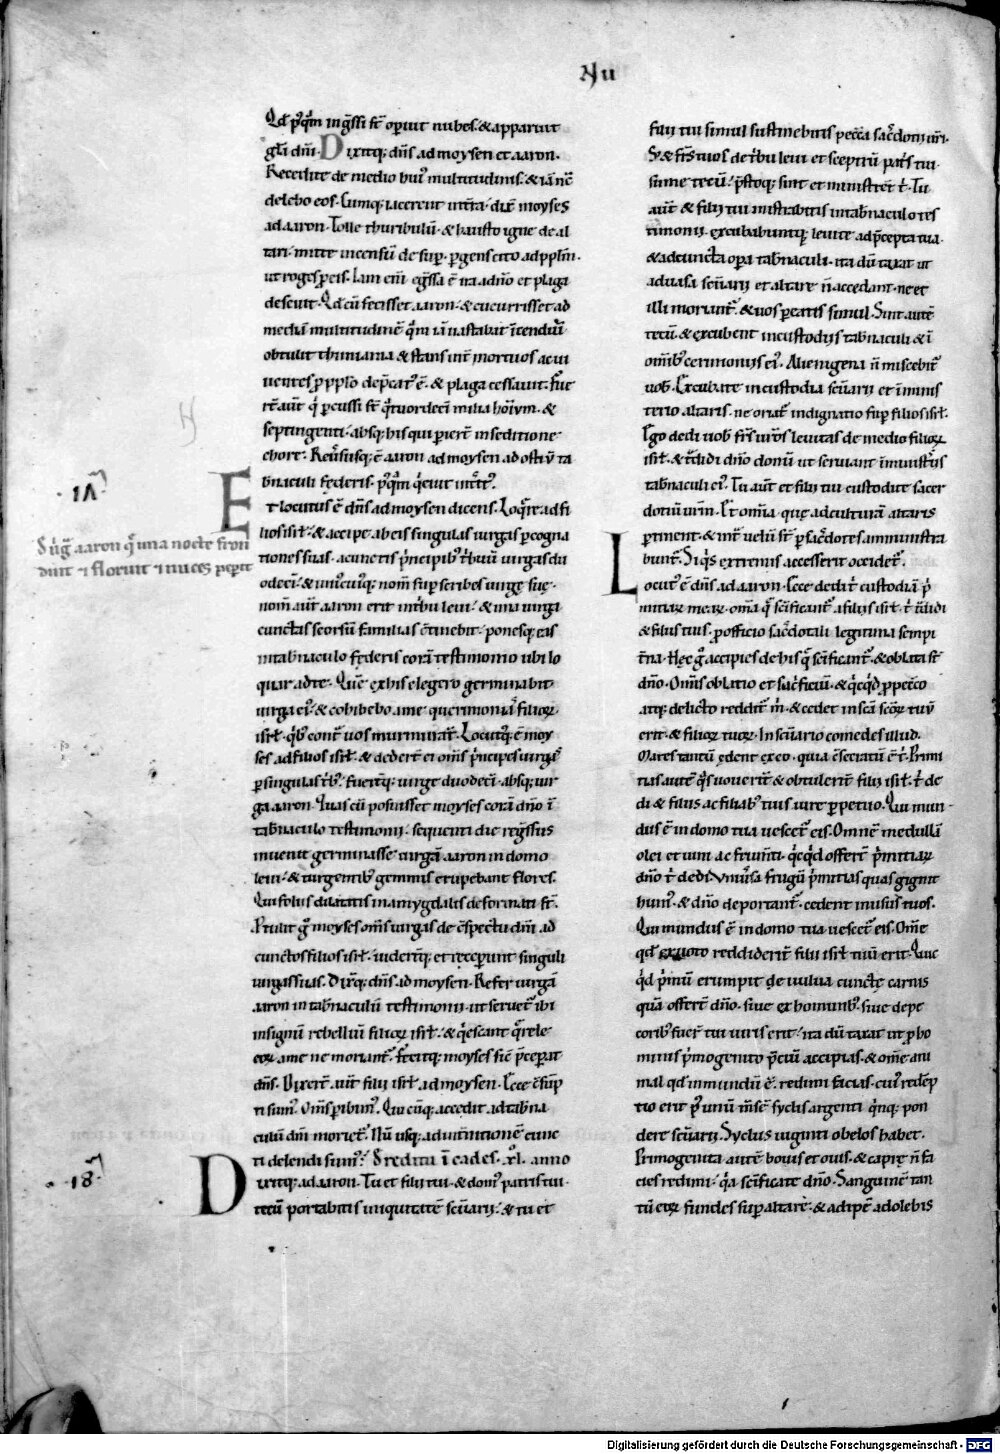 Nu
Qd pꝰqͣm ingssi st̄ opuit nubes. & apparuit
gl̄a dn̄i. Dixitq; dn̄s ad moysen et aaron.
Recedite de medio huiꝰ multitudinis. & iā nc̄
delebo eos. Cumq; iacerent int̄ra. dix̄ moyses
ad aaron. Tolle thuribulū. & hausto igne de al
tari. mitte incensū desup. pgens cito ad pplm̄.
ut roges p eis. Iam eni egssa ē ira a dn̄o et plaga
deseuit. Qd cū fecisset aaron. & cucurrisset ad
mediā multitudinē qͣm iā uastabat īcendiū
obtulit thimiama & stans int̄ mortuos ac ui
uentes p pplo depcatꝰ ē. & plaga cessauit. Fue
rt̄ aut̄ qi pcussi st̄ qͣtuordeci milia hoīum. &
septingenti. absq; his qui piert̄ in seditione
chore. Reūsusq; ē aaron ad moysen ad ostiū ta
bnaculi fęderis. pꝰqͣm qͥeuit int̄itꝰ.
Et locutus ē dn̄s ad moysen dicens. Loqͤre ad fi
lios isrl̄. & accipe ab eis singulas uirgas p cogna
tiones suas. a cunctis pͥncipibꝰ tͥbuū uirgas du
odeci. & uniꝰcuiꝰq; nom̄ supscribes uirgę suę.
nom̄ aut̄ aaron erit in tͥbu leui. & una uirga
cunctas seorsū familias c̄tinebit. ponesq; eas
in tabnaculo fęderis corā testimonio ubi lo
quar ad te. Quē ex his elegero germinabit
uirga eiꝰ. & cohibebo a me querimoniā filioꝝ
isrl̄. qͥbꝰ cont̄ uos murmurāt. Locutꝰq; ē moy
ses ad filios isrl̄. & dedert̄ ei om̄s pͥncipes uirgas
p singulas tͥbꝰ. fuert̄q; uirge duodeci. absq; uir
ga aaron. Quas cū posuisset moyses corā dn̄o ī
tabnaculo testimonij. sequenti die regssus
inuenit germinasse uirgā aaron in domo
leui. & turgentibꝰ gemmis erupebant flores.
Qui folijs dilatatis in amygdalas deformati st̄.
Ptulit gͦ moyses om̄s uirgas de c̄spectu dn̄i ad
cunctos filios isrl̄. uidert̄q; et ręcepunt singuli
uirgas suas. Dix̄q; dn̄s ad moysen. Refer uirgā
aaron in tabnaculū testimonij. ut seruet̄ ibi
in signū rebelliū filioꝝ isrl̄. & qͥescant qͤrele
eoꝝ a me ne moriant̄. Fecitq; moyses sic pcepat
dn̄s. Dixert̄ aut̄ filij isrl̄ ad moysen. Ecce c̄sūp
ti sumꝰ. Om̄s pibimꝰ. Qui cūq; accedit ad tabna
culū dn̄i moriet̄. Nū usq; ad int̄nitionē cunc
ti delendi sumꝰ. S reditu ī cades. xl. anno
Dixitq; ad aaron. Tu et filij tui. & domꝰ patris tui
tecū portabitis iniquitatē scuarij. & tu et
1Λ
S uͥg aaron qͤ una nocte fron
duit ⁊ floruit ⁊ nuces pepit
18
filij tui simul sustinebitis pecca sacdotij uri.
S; & fr̄s tuos de tͥbu leui et sceptrū patͥs tui
sume tecū. pstoq; sint et ministrēt tͥ. Tu
aut̄ & filij tui ministrabitis in tabnaculo tes
timonij. excubabuntq; leuite ad pcepta tua.
& ad cuncta opa tabnaculi. ita dū taxat ut
ad uasa scuarij et altare n̄ accedant. ne et
illi moriant̄. & uos peatis simul. Sint autē
tecū. & excubent in custodijs tabnaculi. & ī
om̄ibꝰ cerimonijs eiꝰ. Alienigena n̄ miscebit̄
uob̄. Excubate in custodia scuarij et ī minis
terio altaris. ne oriat̄ indignatio sup filios isrl̄.
Ego dedi uob̄ fr̄s ur̄os leuitas de medio filioꝝ
isrl̄. & tͣdidi dn̄o donū ut seruiant ī ministͥijs
tabnaculi eiꝰ. Tu aut̄ et filij tui custodite sacer
dotiū urm̄. Et om̄ia que ad culturā altaris
ptinent. & intͣ uelū st̄ p sacdores amministra
bunt̄. Siqͥs extraneus accesserit occidet̄.
Locutꝰ ē dn̄s ad aaron. Ecce dedi tͥ custodiā pͥ
mitiaꝝ meaꝝ. om̄a qͤ scificant̄ a filijs isrl̄. tͥ tͣdidi
& filijs tuis. p officio sacdotali legitima sempi
tna. Hęc gͦ accipies de his qͤ scificant̄. & oblata st̄
dn̄o. Om̄is oblatio et sacficiū. & qͥcqͥd p pecco
atq; delicto reddit̄ m̄. & cedet in scā scōꝝ tuū
erit. & filioꝝ tuoꝝ. In scuario comedes illud.
Mares tantū edent ex eo. quia c̄secratū ē tͥ. Primi
tias autē qͣs uouerit̄ & obtulerit̄ filij isrl̄. tͥ de
di & filijs ac filiabꝰ tuis iure ppetuo. Qui mun
dus ē in domo tua uescet̄ eis. Omnē medullā
olei et uini ac frum̄ti. qͥcqͥd offert̄ pͥmitiaꝝ
dn̄o tͥ dedi. Uniūsa frugū pͥmitias quas gignit
humꝰ. & dn̄o deportant̄. cedent in usus tuos.
Qui mundus ē in domo tua uescet̄ eis. Om̄e
qd ex uoto reddiderit̄ filij isrl̄ tuū erit. Quic
qͥd pͥmū erumpit de uulua cunctę carnis
quā offert̄ dn̄o. siue ex hominibꝰ. siue de pe
coribꝰ fuer̄ tui iuris erit. ita dū taxat ut p ho
minis pͥmogenito pciū accipias. & om̄e ani
mal qd inmundū ē. redimi facias. cuiꝰ redēp
tio erit pꝰ unū m̄sē syclis argenti qͥnq; pon
dere scuarij. Syclus uiginti obelos habet.
Primogenita autē bouis et ouis. & caprę n̄ fa
cies redimi. qͥa scificate dn̄o. Sanguinē tan
tū eoꝝ fundes sup altare. & adipē adolebis
Digitalisierung gefördert durch die Deutsche Forschungsgemeinschaft - DFG